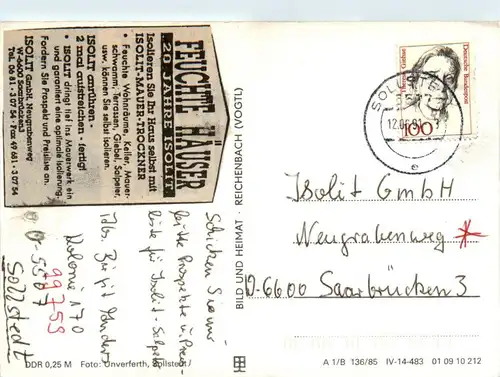 FEUCHTE HÄUSER
20 JAHRE ISOLIT
Isolieren Sie Ihr Haus selbst mit
ISOLIT-MAUER-TROCKNER
• Feuchte Wohnräume, Keller, Mauer-
schwamm, Terrassen, Giebel, Salpeter,
usw. können Sie selbst
isolieren.
ISOLIT anrühren -
2 mal aufstreichen - fertig!
• ISOLIT dringt tief ins Mauerwerk ein
und garantiert eine optimale Isolierung.
Fordern Sie Prospekt und Preisliste an.
ISOLIT GmbH Neugrabenweg
W-6600 Saarbrücken 3
Tel. 06 81 - 3 07 54 · Fax 49 681 - 3 07 54
Schicken Sie mir
bitte Prospekte u. Preis
liste für Isolit-Salpeter
Birgit
Kolonie 170
997-59
O-5507
Sollstedt
DDR 0,25 M Foto: Unverferth, Sollstedt
BILD UND HEIMAT · REICHENBACH (VOGTL)
Deutsche Bundespost
100
SOLLSTEDT
5507
Isolit GmbH
Neugrabenweg
W-6600 Saarbrücken 3
A 1/B 136/85 IV-14-483 01 09 10 212